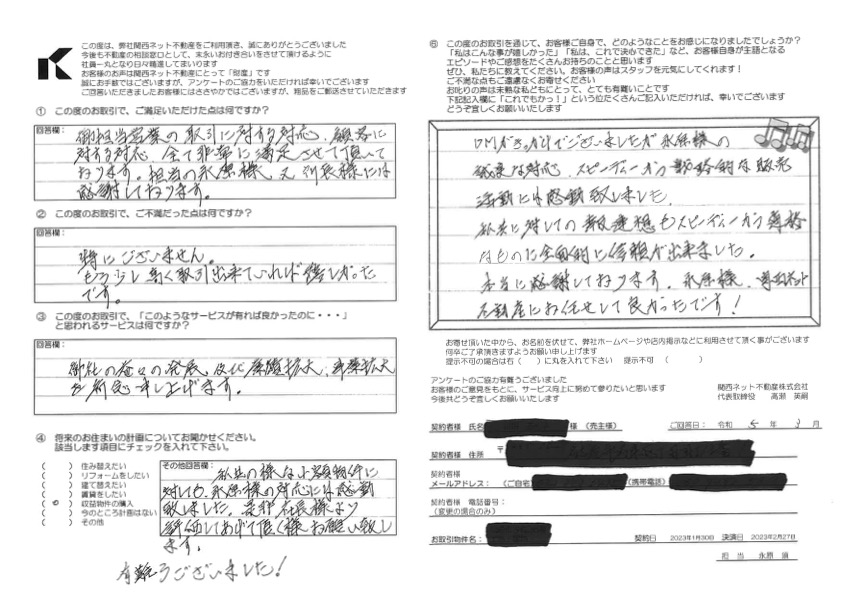 この度は、弊社関西ネット不動産をご利用頂き、誠にありがとうございました
今後も不動産の相談窓口として、末永いお付き合いをさせて頂けるように
社員一丸となり日々精進してまいります
お客様のお声は関西ネット不動産にとって「財産」です
誠にお手数ではございますが、アンケートのご協力をいただければ幸いでございます
ご回答いただきましたお客様にはささやかではございますが、粗品をご郵送させていただきます
① この度のお取引で、ご満足いただけた点は何ですか？
回答欄：
御担当営業の取引に対する対応、顧客に
対する対応、全て非常に満足させて頂いて
おります。担当の永原様、又
感謝しております。
② この度のお取引で、ご不満だった点は何ですか？
回答欄：
特にございません。
もう少し早く取引出来ていれば嬉しかった
です。
③ この度のお取引で、「このようなサービスが有れば良かったのに・・・」
と思われるサービスは何ですか？
回答欄：
御社の益々の発展、及び業種拡大、事業拡大
を祈念申し上げます。
④ 将来のお住まいの計画についてお聞かせください。
該当します項目にチェックを入れて下さい。
（　）住み替えたい
（　）リフォームをしたい
（　）建て替えたい
（　）賃貸をしたい
（○）収益物件の購入
（　）今のところ計画はない
（　）その他
その他回答欄：
私共の様な小額物件に
対しても、永原様の対応には感動
致しました。是非社長様より
評価してあげて頂く様お願い致し
ます。
有難うございました！
⑥ この度のお取引を通じて、お客様ご自身で、どのようなことをお感じになりましたでしょうか？
「私はこんな事が嬉しかった」「私は、これで決心できた」など、お客様自身が主語となる
エピソードやご感想をたくさんお持ちのことと思います
ぜひ、私たちに教えてください。お客様の声はスタッフを元気にしてくれます！
ご不満な点もご遠慮なくお寄せください
お叱りの声は未熟な私どもにとって、とても有難いことです
下記記入欄に「これでもかっ！」という位たくさんご記入いただければ、幸いでございます
どうぞ宜しくお願いいたします
DMがきっかけでございましたが永原様の
な対応、スピーディーかつ戦略的な販売
活動には感動致しました。
私共に対しての報連相もスピーディーかつ
なものに全面的に信頼が出来ました。
本当に感謝しております。永原様、関西ネット
不動産にお任せして良かったです！
お寄せ頂いた中から、お名前を伏せて、弊社ホームページや店内掲示などに利用させて頂く事がございます
何卒ご了承頂きますようお願い申し上げます
提示不可の場合は右（　）に丸を入れて下さい　提示不可　（　　）
アンケートのご協力有難うございました
お客様のご意見をもとに、サービス向上に努めて参りたいと思います
今後共どうぞ宜しくお願いいたします
関西ネット不動産株式会社
代表取締役　高瀬　英嗣
契約者様　氏名　様　（売主様）　ご回答日：　令和　5　年　3　月
契約者様　住所　〒
契約者様
メールアドレス：　（ご自宅　（携帯電話）
契約者様　電話番号：
（変更の場合のみ）
お取引物件名：　契約日　2023年1月30日　決済日　2023年2月27日
担　当　永原